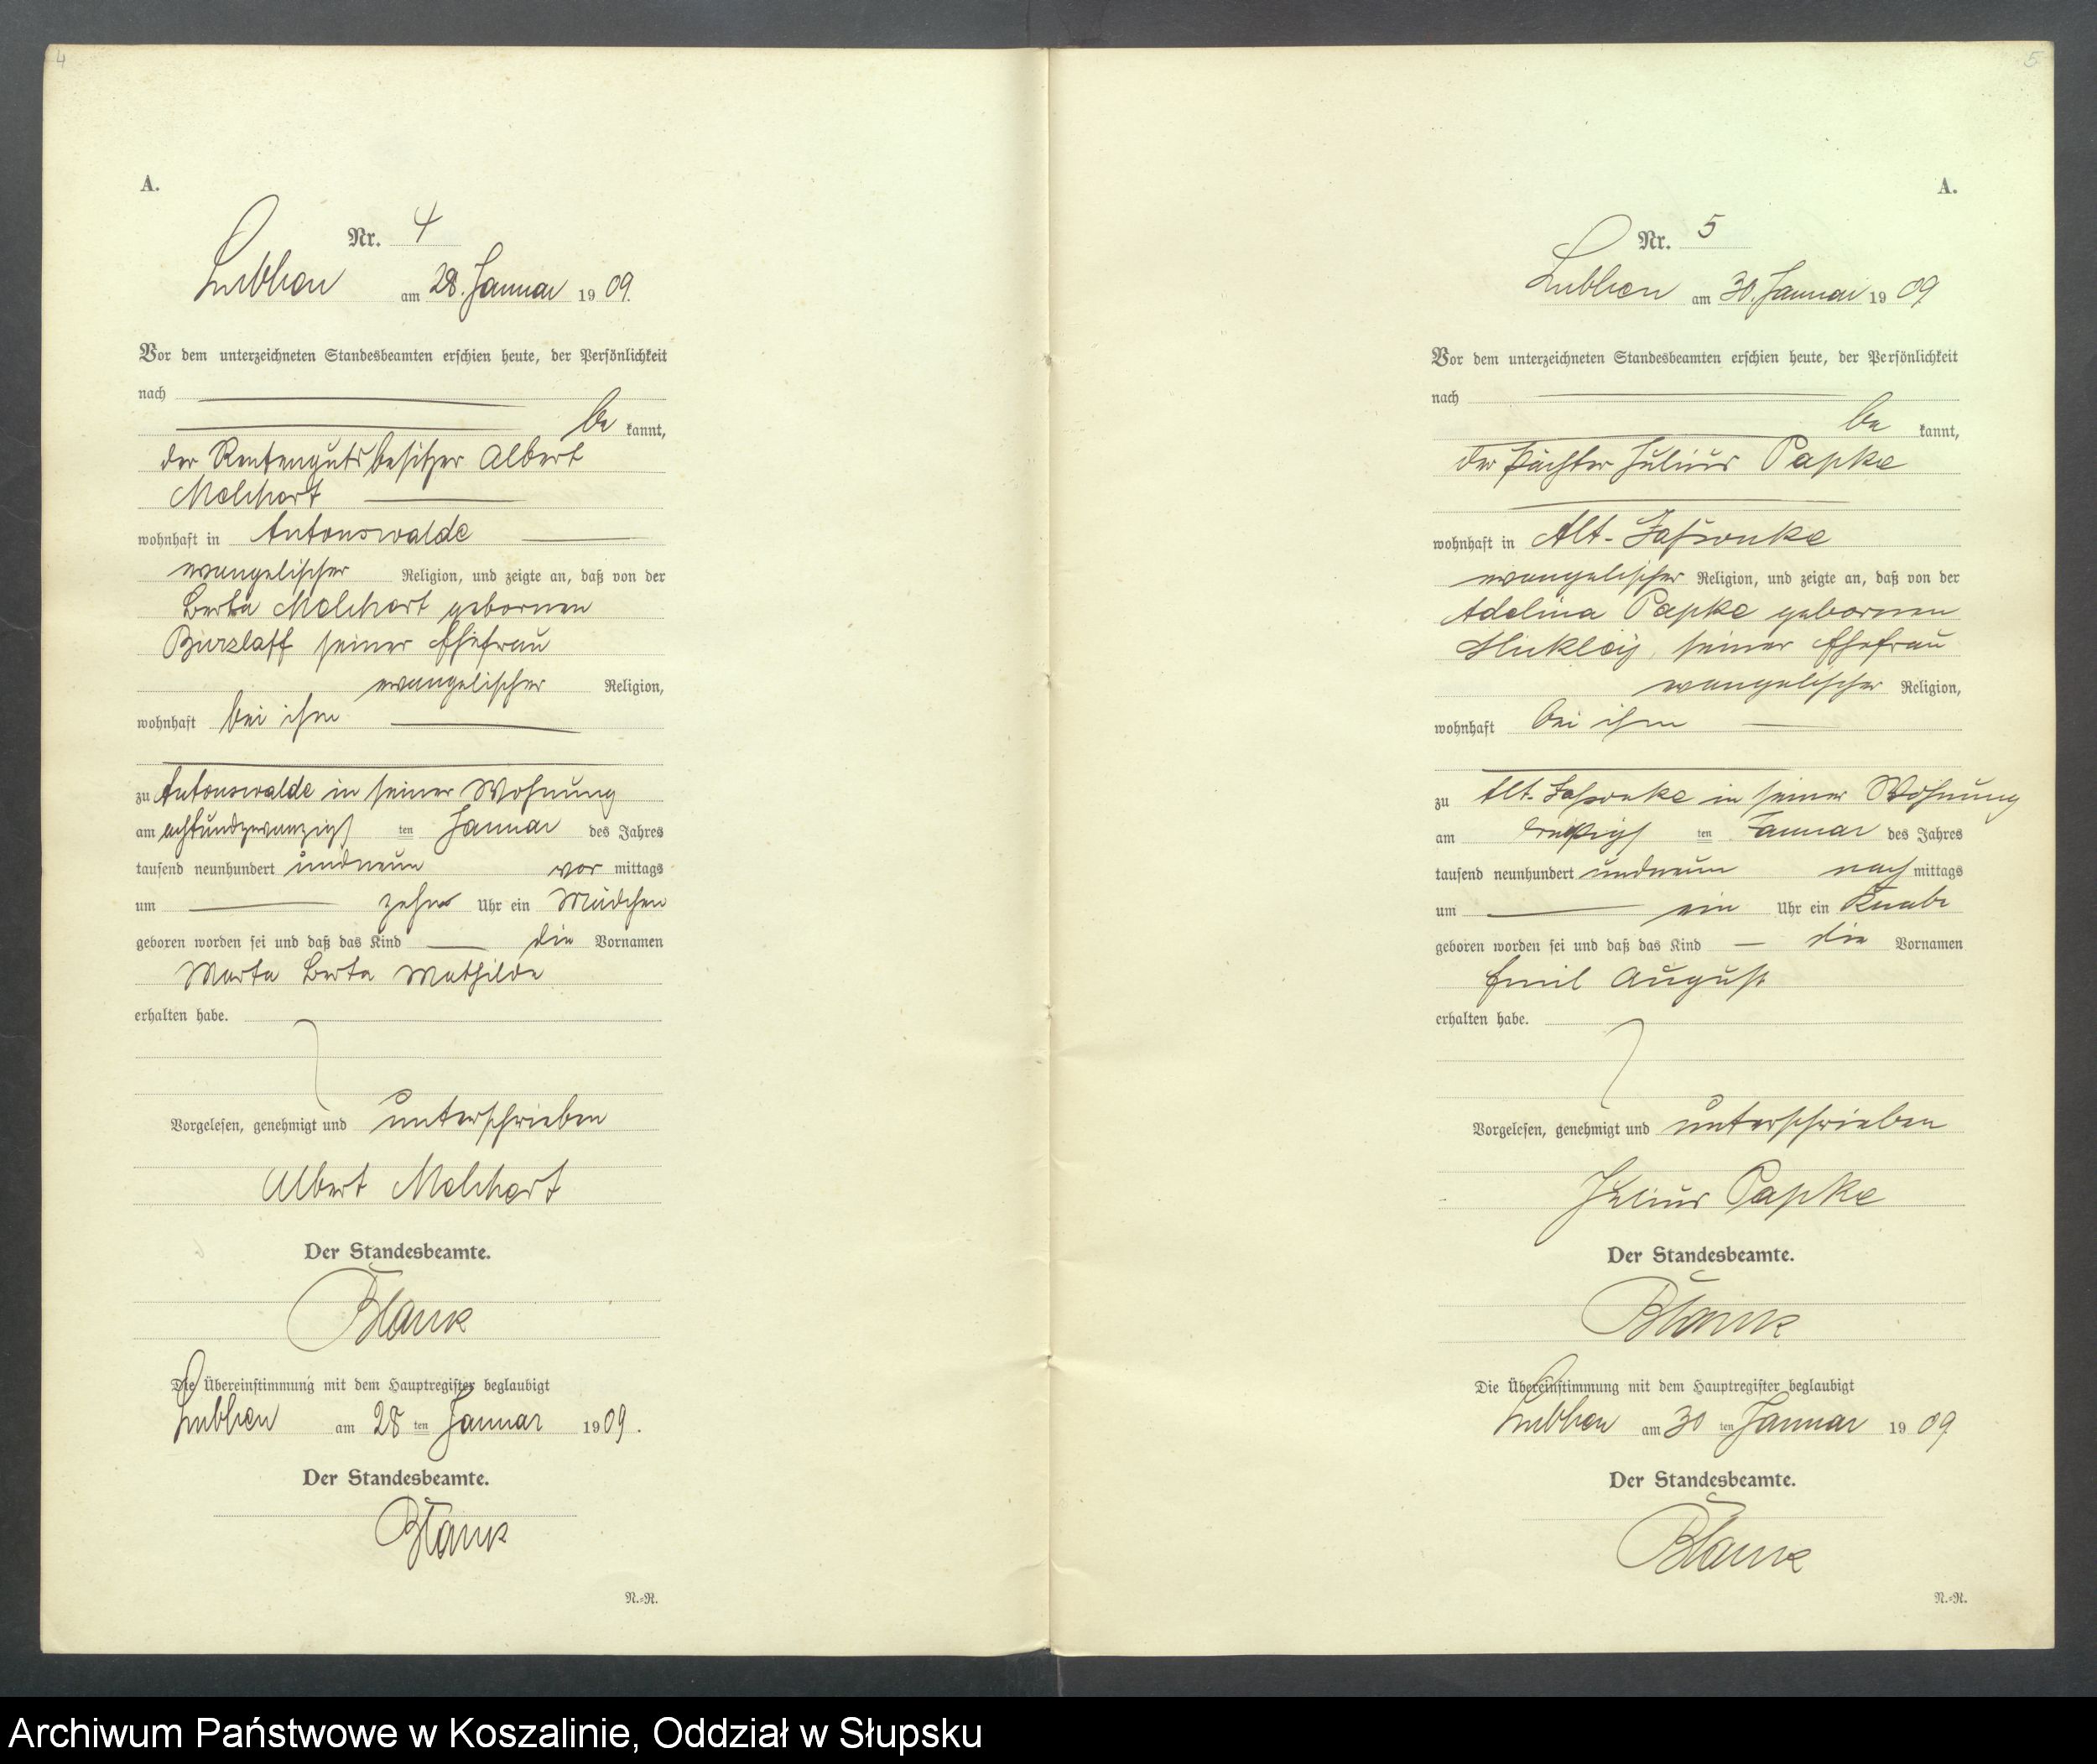 4
A.
Nr. 4
Lubben am 28. Januar 1909.
Vor dem unterzeichneten Standesbeamten erschien heute, der Persönlichkeit
nach
be kannt,
der Rentengutsbesitzer Albert
Melchert
wohnhaft in Antonswalde
evangelischer Religion, und zeigte an, daß von der
Berta Melchert gebornen
seiner Ehefrau
evangelischer Religion,
wohnhaft bei ihm
zu Antonswalde in seiner Wohnung
am achtundzwanzigsten Januar des Jahres
tausend neunhundert undneun vor mittags
um zehn Uhr ein Mädchen
geboren worden sei und daß das Kind die Vornamen
Marta Berta Mathilde
erhalten habe.
Vorgelesen, genehmigt und unterschrieben
Albert Melchert
Der Standesbeamte.
Blank
Die Übereinstimmung mit dem Hauptregister beglaubigt
Lubben am 28 ten Januar 1909.
Der Standesbeamte.
Blank
N.=R.
5
A.
Nr. 5
Lubben am 30. Januar 1909
Vor dem unterzeichneten Standesbeamten erschien heute, der Persönlichkeit
nach
be kannt,
der Pächter Julius Papke
wohnhaft in Alt-
evangelischer Religion, und zeigte an, daß von der
Adelina Papke gebornen
seiner Ehefrau
evangelischer Religion,
wohnhaft bei ihm
zu Alt- in seiner Wohnung
am dreißigsten Januar des Jahres
tausend neunhundert undneun nach mittags
um ein Uhr ein Knabe
geboren worden sei und daß das Kind die Vornamen
Emil August
erhalten habe.
Vorgelesen, genehmigt und unterschrieben
Julius Papke
Der Standesbeamte.
Blank
Die Übereinstimmung mit dem Hauptregister beglaubigt
Lubben am 30 ten Januar 1909
Der Standesbeamte.
Blank
N.=R.
Archiwum Państwowe w Koszalinie, Oddział w Słupsku